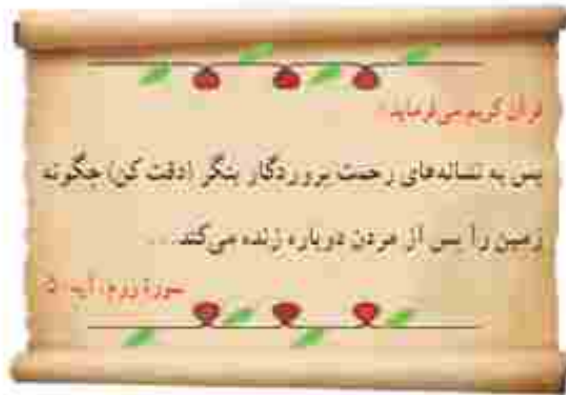 قرآن کریم می‌فرماید:
پس به نشانه‌های رحمت پروردگار بنگر (دقت کن) چگونه
زمین را پس از مردن دوباره زنده می‌کند...
سورهٔ روم، آیه ۵۰